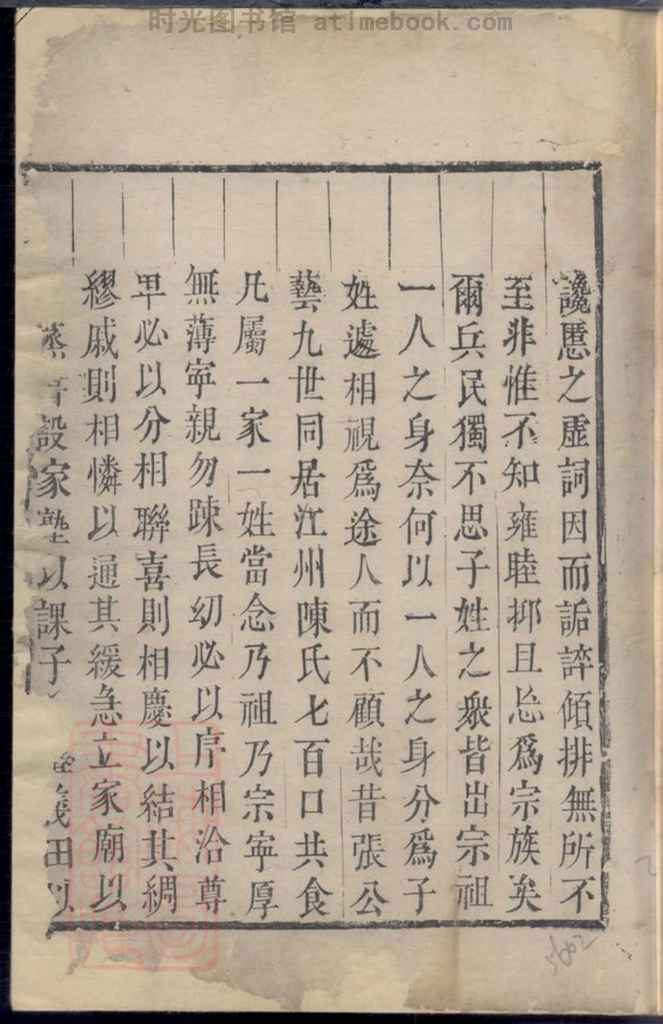 时光图书馆 atimebook.com
讒慝之虛詞因而詬誶傾排無所不
至非惟不知雍睦抑且忘爲宗族矣
爾兵民獨不思子姓之衆皆出宗祖
一人之身奈何以一人之身分爲子
姓遽相視爲途人而不顧哉昔張公
藝九世同居江州陳氏七百口共食
凡屬一家一姓當念乃祖乃宗寧厚
無薄寧親勿踈長幼必以序相洽尊
卑必以分相聯喜則相慶以結其綢
繆戚則相憐以通其緩急立家廟以
設家塾以課子義田以
5602